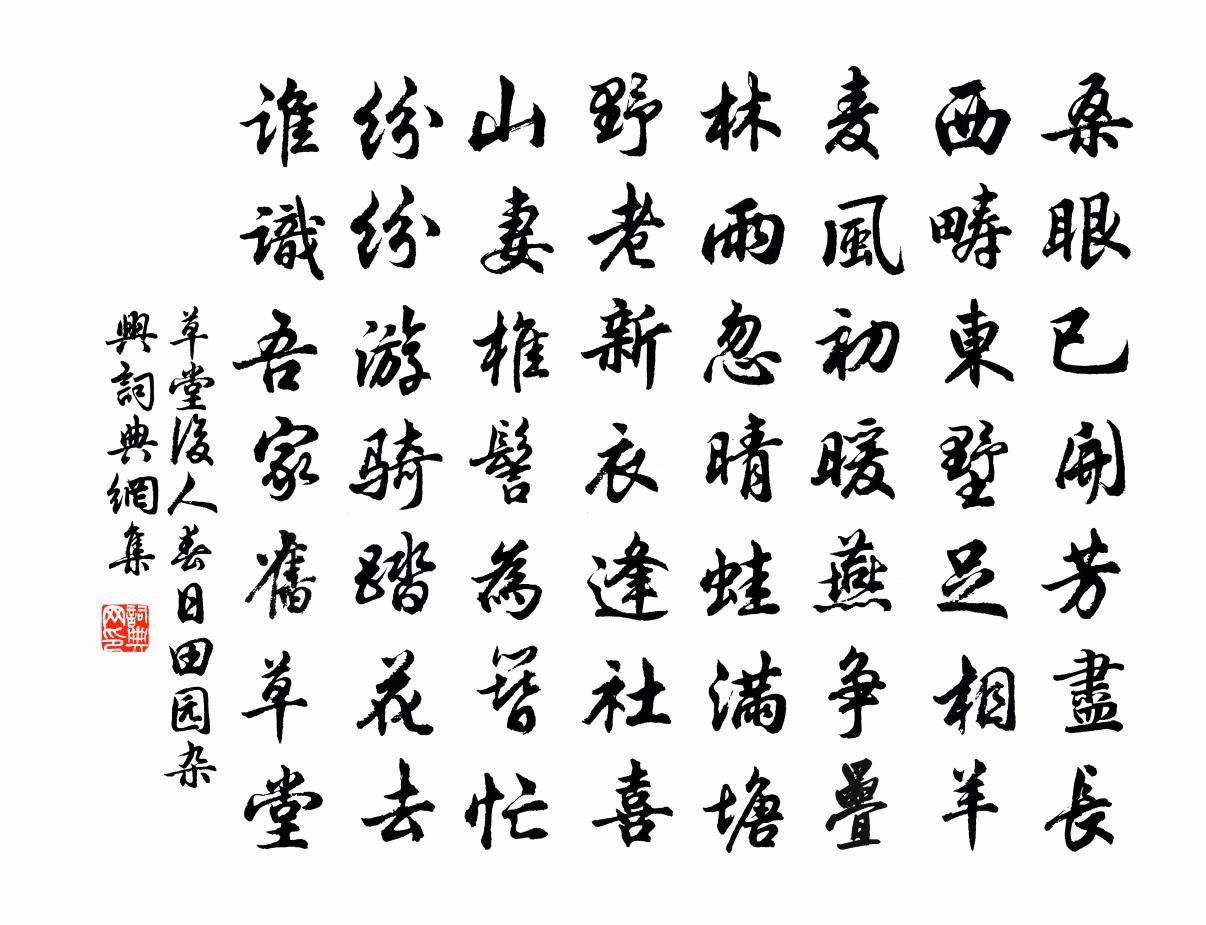 桑眼已開芳盡長
西疇東墅足相羊
麦風初暖燕争疊
林雨忽晴蛙满塘
野老新衣逢社喜
山妻椎髻為簪忙
紛紛游骑踏花去
誰識吾家舊草堂
草堂後人春日田园杂
興詞典網集
詞典网印